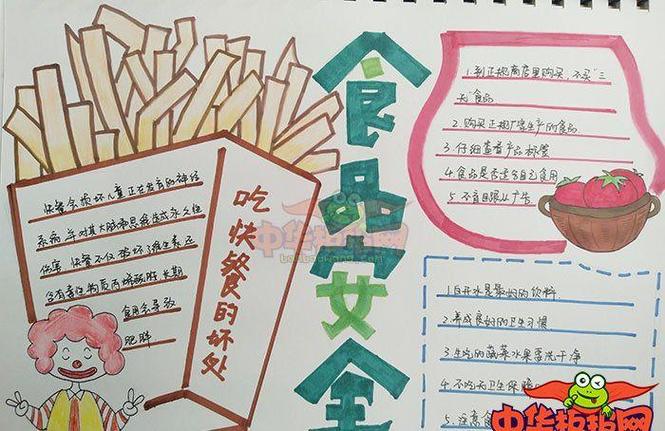 食品安全
吃快餐的坏处
快餐会损坏儿童正在发育的神经
系统,并对其大脑和思维造成永久性
伤害 快餐不仅破坏了维生素还
含有毒性物质丙烯酰胺 长期
食用会导致
肥胖
1.到正规商店里购买,不买“三
无”食品
2.购买正规厂家生产的食品
3.仔细查看产品标签
4.食品是否适合自己食用
5.不盲目跟从广告
1.白开水是最好的饮料
2.养成良好的卫生习惯
3.生吃的蔬菜水果要洗干净
4.不吃无卫生保障
5.注意食
中华板报网
中华板报网